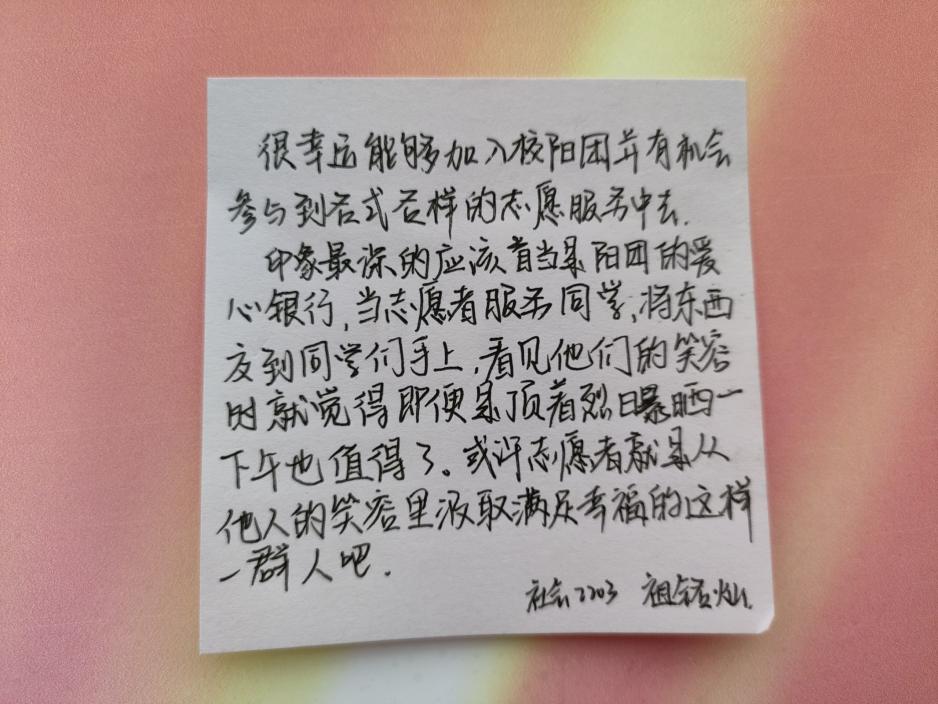 很幸运能够加入校阳团并有机会
参与到各式各样的志愿服务中去.
印象最深的应该首当是阳团的爱
心银行,当志愿者服务同学,将东西
交到同学们手上,看见他们的笑容
时就觉得即便是顶着烈日暴晒一
下午也值得了。或许志愿者就是从
他人的笑容里汲取满足幸福的这样
一群人吧.
社会2203 祖